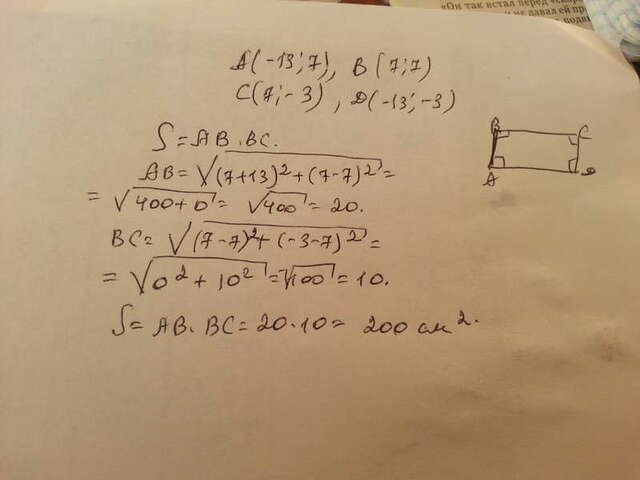 «Он так встал перед «скор
и не давал ей пр
A(-13;7), B(7;7)
C(7;-3), D(-13;-3)
B C
A D
S=AB·BC.
AB=√(7+13)²+(7-7)²=
=√400+0=√400=20.
BC=√(7-7)²+(-3-7)²=
=√0²+10²=√100=10.
S=AB·BC=20·10=200 см².